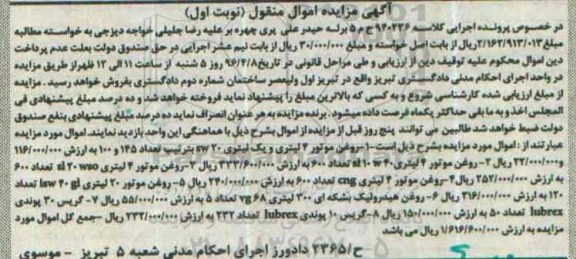 آگهی مزایده اموال منقول (نوبت اول)
در خصوص پرونده اجرایی کلاسه ۹۴۰۲۳۶ ج م ۵ برلــه حیدر علی پری چهره بر علیه رضا جلیلی خواجه دیزجی به خواسته مطالبه
مبلغ ۲/۱۶۲/۹۱۳/۰۱۳ریال از بابت اصل خواسته و مبلغ ۳۰/۰۰۰/۰۰۰ ریال از بابت نیم عشر اجرایی در حق صندوق دولت بعلت عدم پرداخت
دین اموال محکوم علیه توقیف دین از ارزیابی و طی مراحل قانونی در تاریخ ۹۶/۴/۸ روز ۵ شنبه از ساعت ۱۱ الی ۱۲ ظهر از طریق مزایده
در واحد اجرای احکام مدنی دادگستری تبریز واقع در تبریز اول ولیعصر ساختمان شماره دوم دادگستری بفروش خواهد رسید. مزایده
از مبلغ ارزیابی شده کارشناسی شروع و به کسی که بالاترین مبلغ را پیشنهاد نماید فروخته خواهد شد و ده درصد مبلغ پیشنهادی فی
المجلس اخذ و به ما بقی حداکثر یکماه فرصت داده میشود. برنده مزایده به هر عنوان انصراف نماید ده درصد مبلغ پیشنهادی بنفع صندوق
دولت ضبط خواهد شد طالبین می توانند پنج روز قبل از مزایده از اموال بشرح ذیل با هماهنگی این واحد بازدید نمایند. اموال مورد مزایده
عبارتند از : اموال مورد مزایده بشرح ذیل است -۱-روغن موتور ۴ لیتری و یک لیتری sw ۲۰ بترتیب تعداد ۱۴۵ و ۱۰۰ به ارزش ۱۱۶/۰۰۰/۰۰۰
و۲۲/۰۰۰/۰۰۰ ریال ۲- روغن موتور ۴ لیتری ۴۰ sl ۱۰ w تعداد ۶۰۰ به ارزش ۳۳۳/۶۰۰/۰۰۰ ریال ۳-روغن موتور ۴ لیتری sl ۲۰ w۵۰ تعداد ۶۰۰
به ارزش ۲۵۲/۰۰۰/۰۰۰ ریال ۴-روغن موتور ۴ لیتری cng تعداد ۶۰۰ به ارزش ۲۴۰/۰۰۰/۰۰۰ ریال ۵-روغن موتور ۲۰ لیتری ۱۵w ۴۰ gl تعداد
۱۲۰ به ارزش ۳۱۶/۰۰۰/۰۰۰ ریال ۶- روغن هیدرولیک بشکه ای ۲۰۰ لیتری ۶۸ vg تعداد ۵ به ارزش ۵۵/۰۰۰/۰۰۰ ریال ۷- گریس ۳۰ پوندی
lubrex تعداد ۵۰ به ارزش ۱۵۰/۰۰۰/۰۰۰ ریال ۸-گریس ۱۰ پوندی lubrex تعداد ۲۳۲ به ارزش ۲۳۲/۰۰۰/۰۰۰ ریال -جمع کل اموال مورد
مزایده به ارزش ۱/۶۱۶/۶۰۰/۰۰۰ ریال می باشد
ح/۲۳۶۵ دادورز اجرای احکام مدنی شعبه ۵ تبریز - موسوی